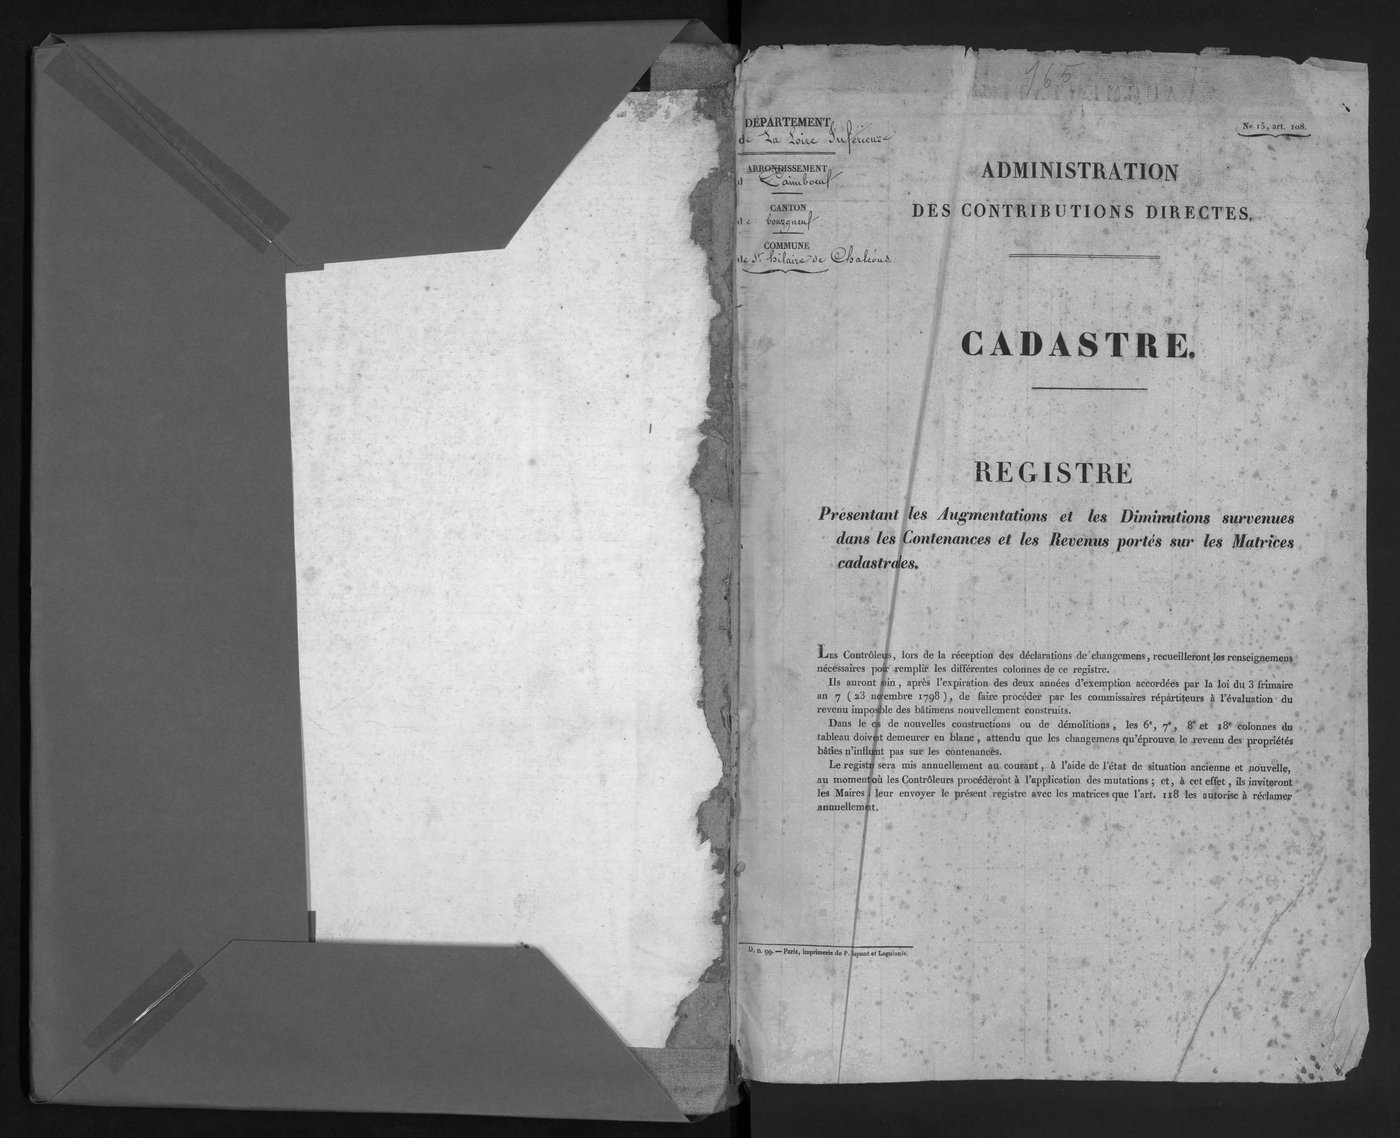 165
DÉPARTEMENT
de La Loire Inférieure
ARRONDISSEMENT
d Paimboeuf
CANTON
de bourgneuf
COMMUNE
de St hilaire de Chaléons
No 15, art. 108.
ADMINISTRATION
DES CONTRIBUTIONS DIRECTES,
CADASTRE.
REGISTRE
Présentant les Augmentations et les Diminutions survenues
dans les Contenances et les Revenus portés sur les Matrices
cadastrales.
LES Contrôleurs, lors de la réception des déclarations de changemens, recueilleront les renseignemens
nécessaires pour remplir les différentes colonnes de ce registre.
Ils auront soin, après l'expiration des deux années d'exemption accordées par la loi du 3 frimaire
an 7 (23 novembre 1798), de faire procéder par les commissaires répartiteurs à l'évaluation du
revenu imposable des bâtimens nouvellement construits.
Dans le cas de nouvelles constructions ou de démolitions, les 6e, 7e, 8e et 18e colonnes du
tableau doivent demeurer en blanc, attendu que les changemens qu'éprouve le revenu des propriétés
bâties n'influent pas sur les contenances.
Le registre sera mis annuellement au courant, à l'aide de l'état de situation ancienne et nouvelle,
au moment où les Contrôleurs procéderont à l'application des mutations; et, à cet effet, ils inviteront
les Maires à leur envoyer le présent registre avec les matrices que l'art. 118 les autorise à réclamer
annuellement.
D. n. 99. — Paris, imprimerie de P. Dupont et Laguionie.